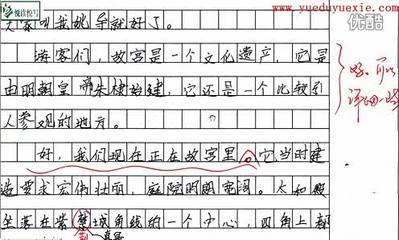 悦读悦写
www.yueduyuexie.com
优酷
叫我姚导就好了。
游客们，故宫是一个文化遗产，它是
由明朝皇帝朱棣始建，它还是一个比较引
人参观的地方。
好，可以
好，我们现在正在故宫里。它当时建
造要求宏伟壮丽，庭院明朗宽阔。太和殿
坐落在紫禁城角线的一个中心，四角上都